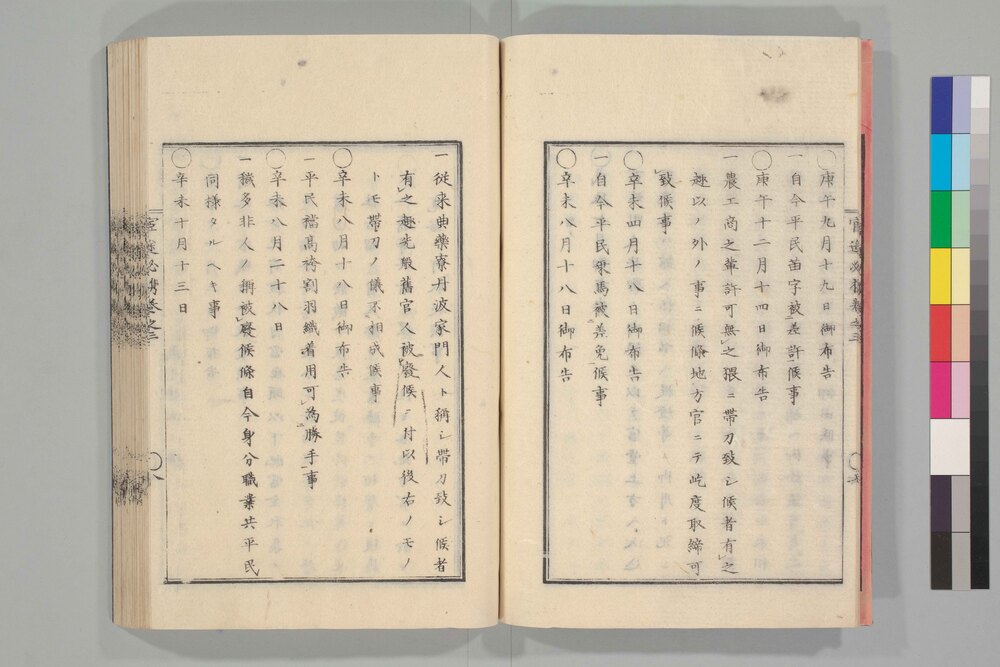 ○庚午九月十九日御布告
一自今平民苗字被差許候事
○庚午十二月十四日御布告
一農工商之輩許可無之猥ニ帯刀致シ候者有之
趣以ノ外ノ事ニ候條地方官ニテ屹度取締可
致候事
○辛未四月十八日御布告
一自今平民乗馬被差免候事
○辛未八月十八日御布告
一従来典藥寮丹波家門人ト稱シ帯刀致シ候者
有之趣先般舊官人被廢候ニ付以後右ノモノ
トモ帯刀ノ儀不相成候事
○辛未八月十八日御布告
一平民襠高袴割羽織着用可為勝手事
○辛未八月二十八日
一穢多非人ノ稱被廢候條自今身分職業共平民
同様タルヘキ事
○辛未十月十三日